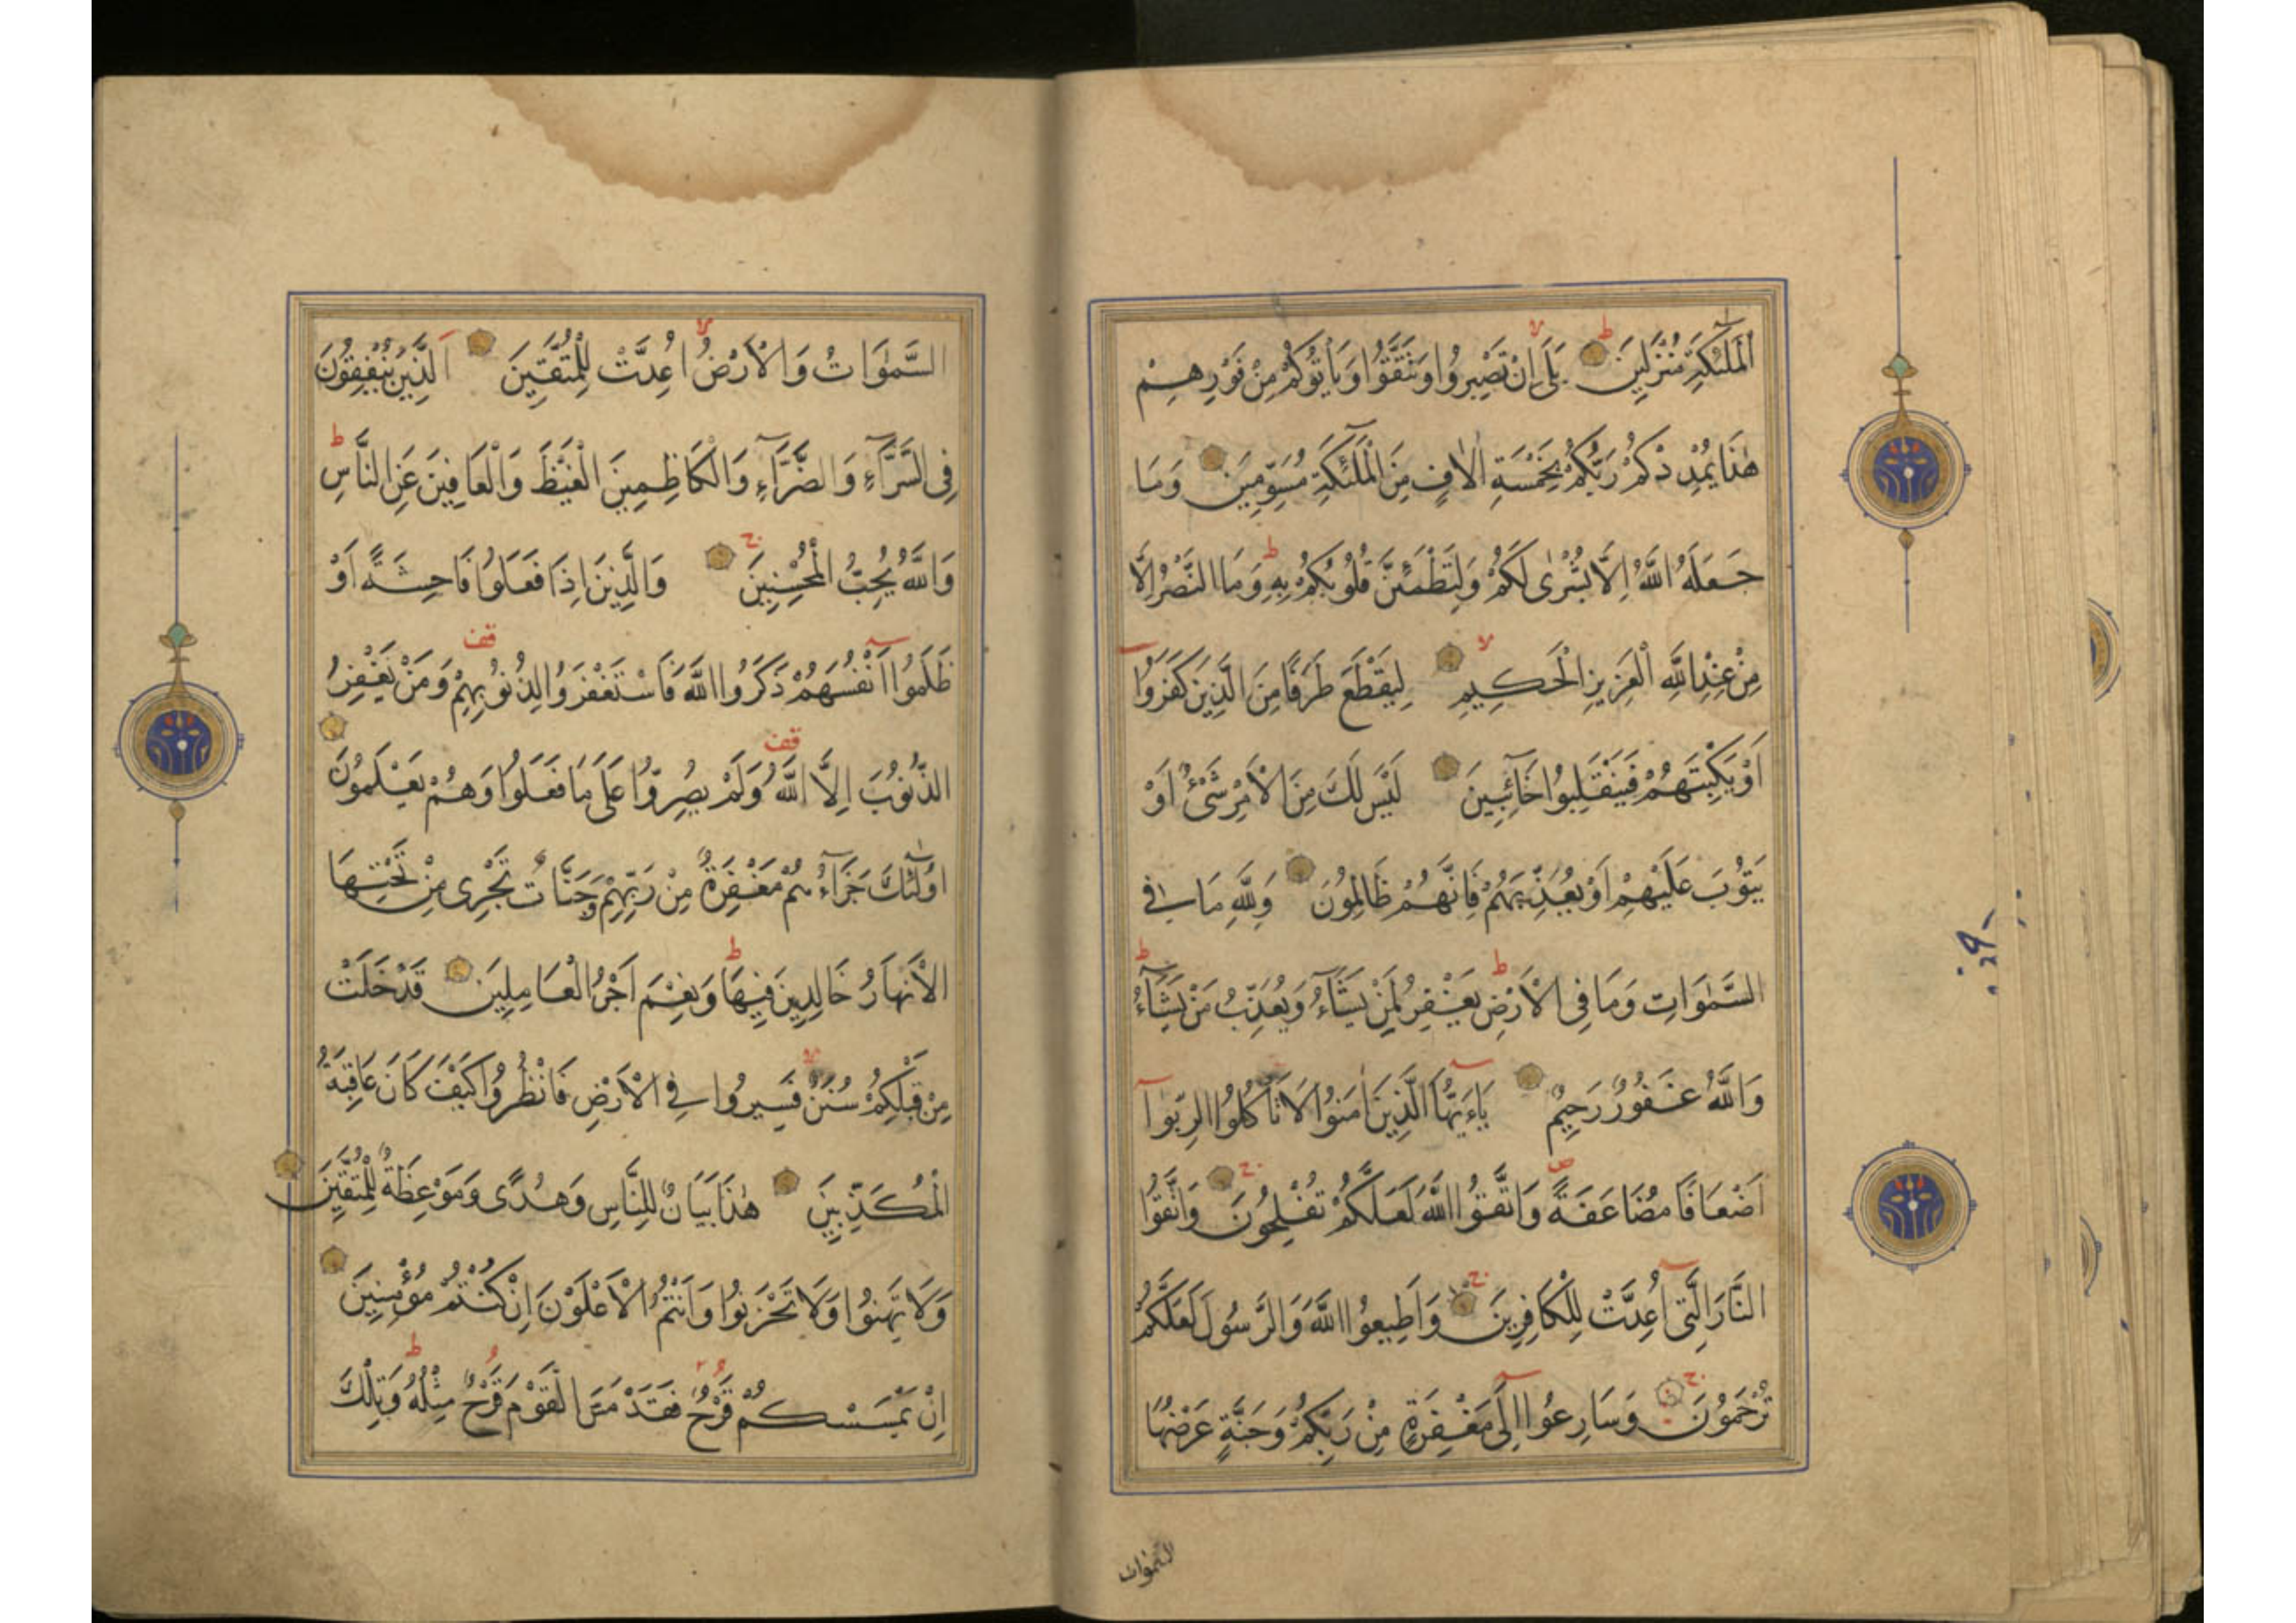 الْمَلٰئِكَةِ مُنْزَلِينَ بَلٰى اِنْ تَصْبِرُوا وَتَتَّقُوا وَيَأْتُوكُمْ مِنْ فَوْرِهِمْ
هٰذَا يُمْدِدْكُمْ رَبُّكُمْ بِخَمْسَةِ اٰلَافٍ مِنَ الْمَلٰئِكَةِ مُسَوِّمِينَ وَمَا
جَعَلَهُ اللّٰهُ اِلَّا بُشْرٰى لَكُمْ وَلِتَطْمَئِنَّ قُلُوبُكُمْ بِهِ وَمَا النَّصْرُ اِلَّا
مِنْ عِنْدِ اللّٰهِ الْعَزِيزِ الْحَكِيمِ لِيَقْطَعَ طَرَفًا مِنَ الَّذِينَ كَفَرُوا
اَوْ يَكْبِتَهُمْ فَيَنْقَلِبُوا خَآئِبِينَ لَيْسَ لَكَ مِنَ الْاَمْرِ شَىْءٌ اَوْ
يَتُوبَ عَلَيْهِمْ اَوْ يُعَذِّبَهُمْ فَاِنَّهُمْ ظَالِمُونَ وَلِلّٰهِ مَا فِى
السَّمٰوَاتِ وَمَا فِى الْاَرْضِ يَغْفِرُ لِمَنْ يَشَآءُ وَيُعَذِّبُ مَنْ يَشَآءُ
وَاللّٰهُ غَفُورٌ رَحِيمٌ يَاءَيُّهَا الَّذِينَ اٰمَنُوا لَا تَأْكُلُوا الرِّبٰوا
اَضْعَافًا مُضَاعَفَةً وَاتَّقُوا اللّٰهَ لَعَلَّكُمْ تُفْلِحُونَ وَاتَّقُوا
النَّارَ الَّتِى اُعِدَّتْ لِلْكَافِرِينَ وَاَطِيعُوا اللّٰهَ وَالرَّسُولَ لَعَلَّكُمْ
تُرْحَمُونَ وَسَارِعُوا اِلٰى مَغْفِرَةٍ مِنْ رَبِّكُمْ وَجَنَّةٍ عَرْضُهَا
السموات
السَّمٰوَاتُ وَالْاَرْضُ اُعِدَّتْ لِلْمُتَّقِينَ اَلَّذِينَ يُنْفِقُونَ
فِى السَّرَّآءِ وَالضَّرَّآءِ وَالْكَاظِمِينَ الْغَيْظَ وَالْعَافِينَ عَنِ النَّاسِ
وَاللّٰهُ يُحِبُّ الْمُحْسِنِينَ وَالَّذِينَ اِذَا فَعَلُوا فَاحِشَةً اَوْ
ظَلَمُوا اَنْفُسَهُمْ ذَكَرُوا اللّٰهَ فَاسْتَغْفَرُوا لِذُنُوبِهِمْ وَمَنْ يَغْفِرُ
الذُّنُوبَ اِلَّا اللّٰهُ وَلَمْ يُصِرُّوا عَلٰى مَا فَعَلُوا وَهُمْ يَعْلَمُونَ
اُولٰئِكَ جَزَآءُهُمْ مَغْفِرَةٌ مِنْ رَبِّهِمْ وَجَنَّاتٌ تَجْرِى مِنْ تَحْتِهَا
الْاَنْهَارُ خَالِدِينَ فِيهَا وَنِعْمَ اَجْرُ الْعَامِلِينَ قَدْ خَلَتْ
مِنْ قَبْلِكُمْ سُنَنٌ فَسِيرُوا فِى الْاَرْضِ فَانْظُرُوا كَيْفَ كَانَ عَاقِبَةُ
الْمُكَذِّبِينَ هٰذَا بَيَانٌ لِلنَّاسِ وَهُدًى وَمَوْعِظَةٌ لِلْمُتَّقِينَ
وَلَا تَهِنُوا وَلَا تَحْزَنُوا وَاَنْتُمُ الْاَعْلَوْنَ اِنْ كُنْتُمْ مُؤْمِنِينَ
اِنْ يَمْسَسْكُمْ قَرْحٌ فَقَدْ مَسَّ الْقَوْمَ قَرْحٌ مِثْلُهُ وَتِلْكَ